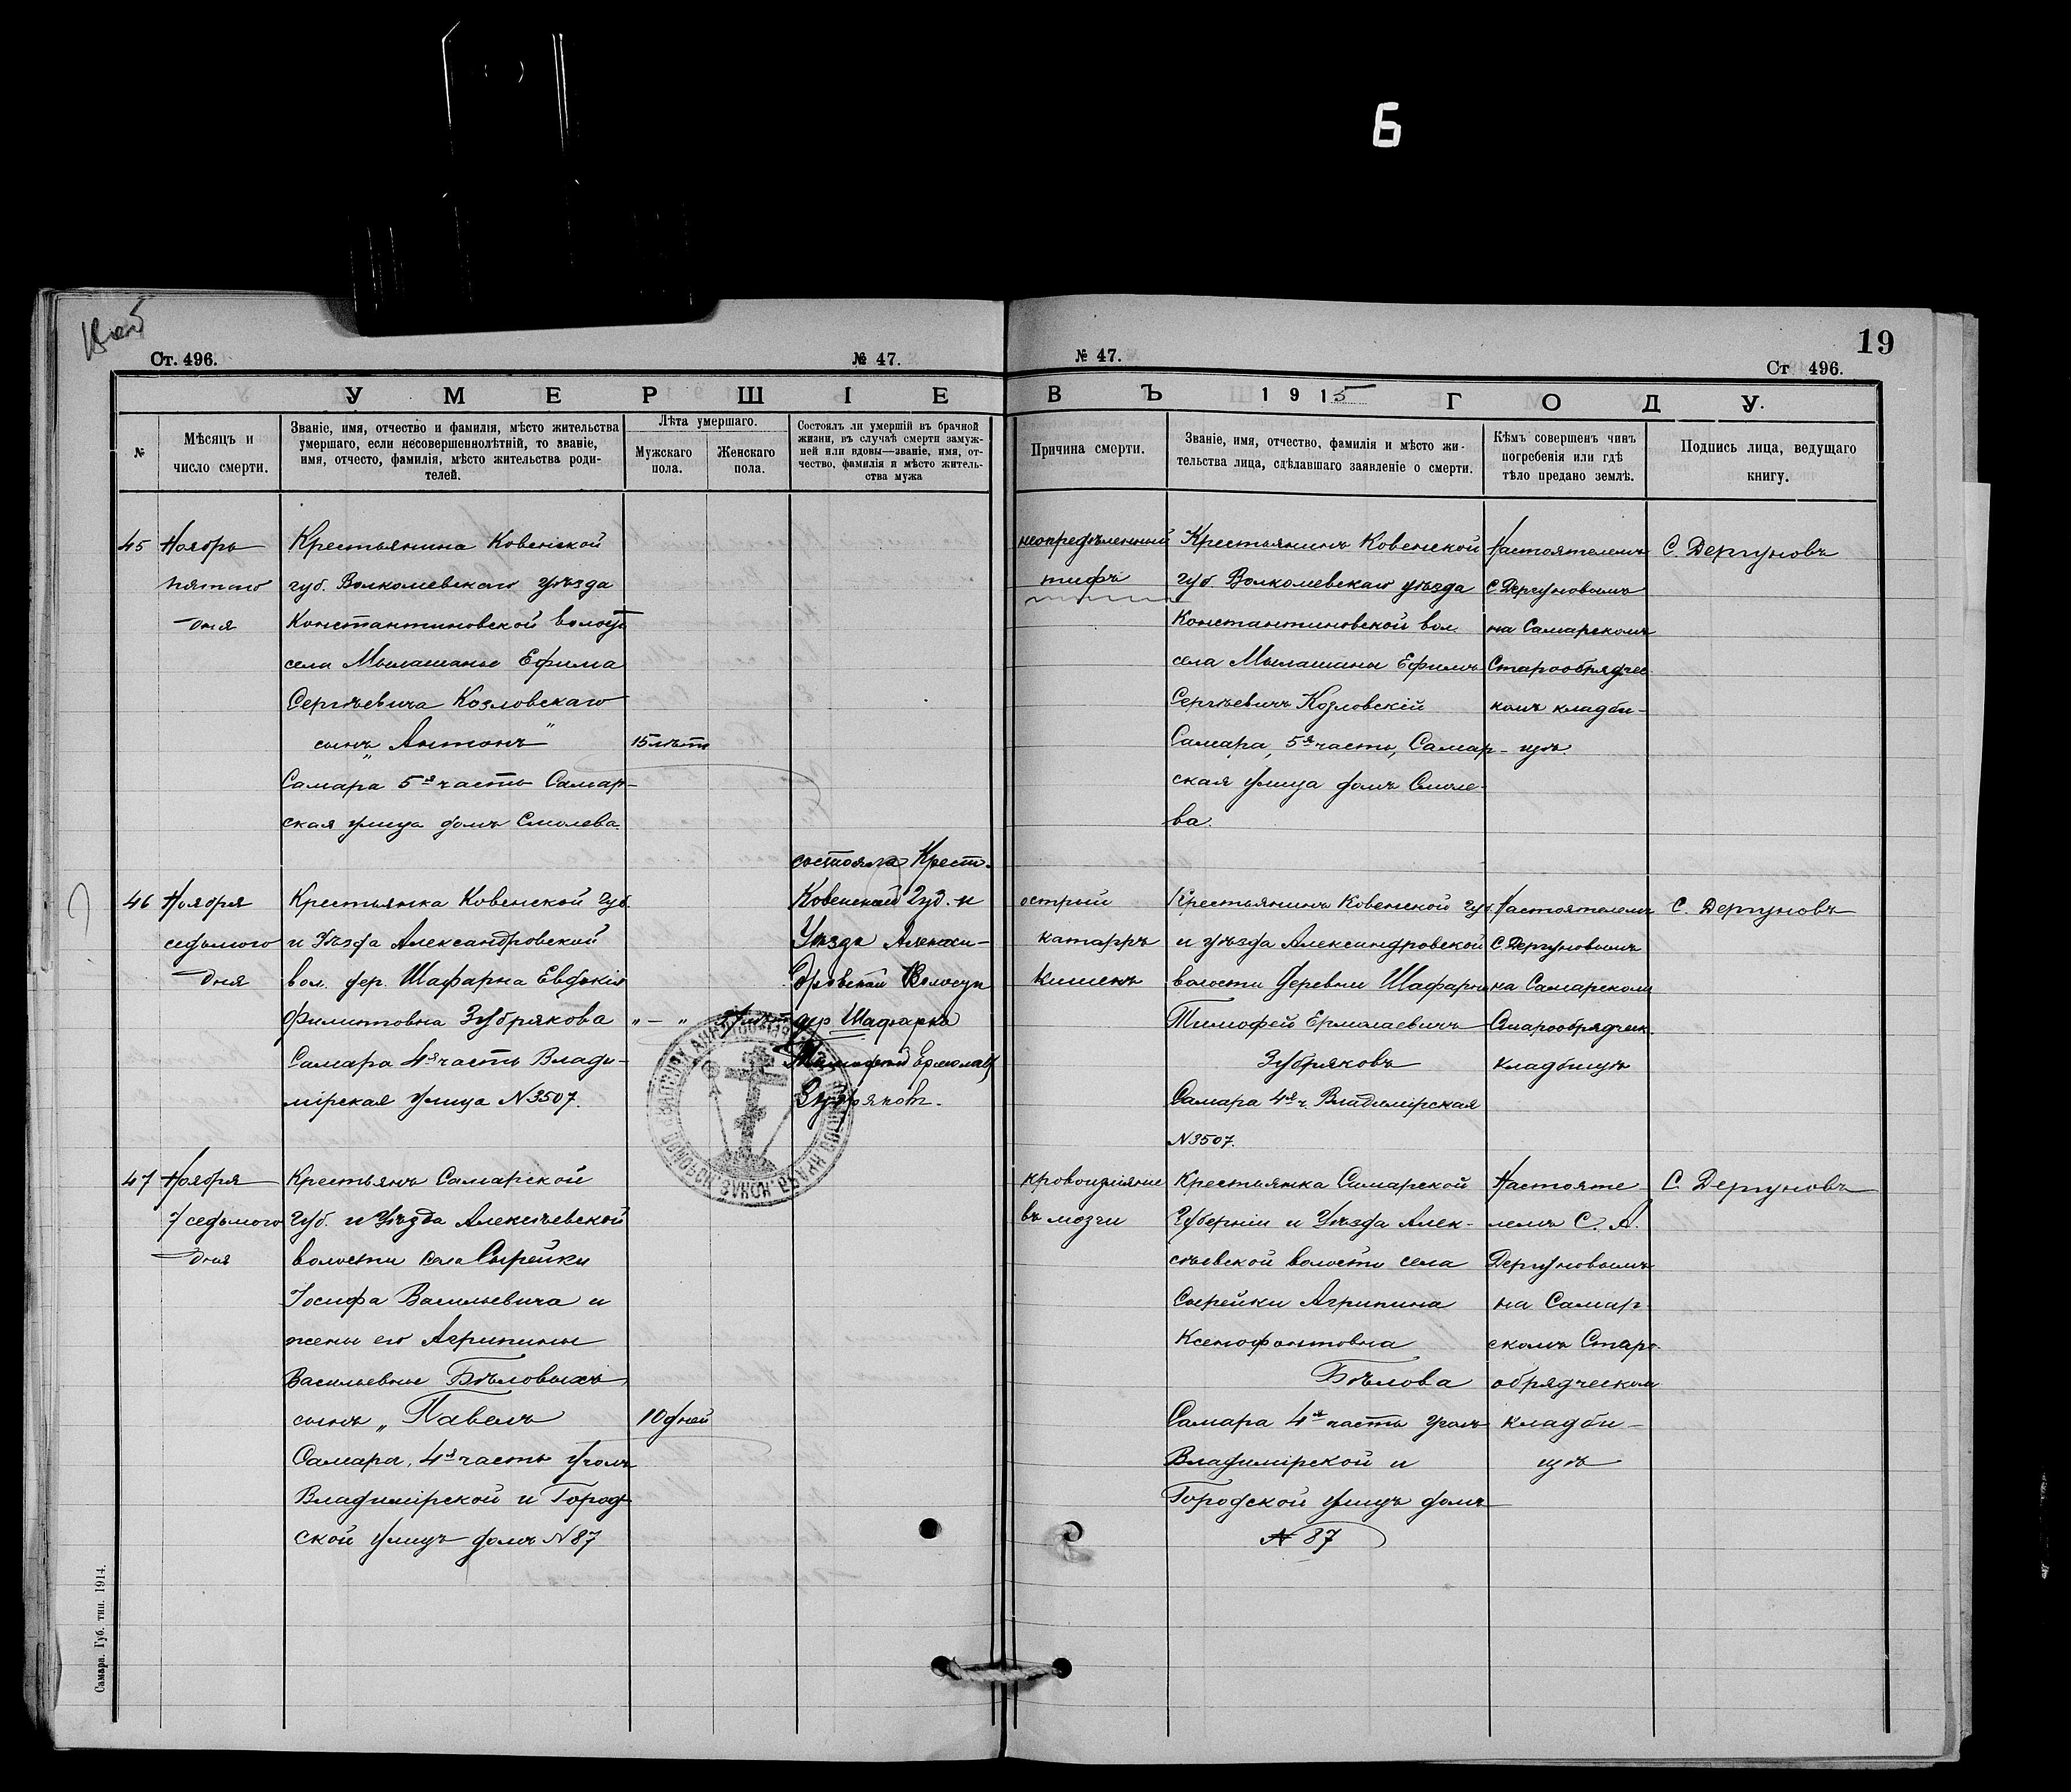 Б
19
Ст. 496.
№ 47.
№ 47.
Ст 496.
УМЕРШІЕ
ВЪ 1915 ГОДУ.
№
Мѣсяцъ и
число смерти.
Званіе, имя, отчество и фамилія, мѣсто жительства
умершаго, если несовершеннолѣтній, то званіе,
имя, отчесто, фамилія, мѣсто жительства роди-
телей.
Лѣта умершаго.
Мужскаго
пола.
Женскаго
пола.
Состоялъ ли умершій въ брачной
жизни, въ случаѣ смерти замуж-
ней или вдовы—званіе, имя, от-
чество, фамилія и мѣсто житель-
ства мужа
Причина смерти.
Званіе, имя, отчество, фамилія и мѣсто жи-
тельства лица, сдѣлавшаго заявленіе о смерти.
Кѣмъ совершенъ чинъ
погребенія или гдѣ
тѣло предано землѣ.
Подпись лица, ведущаго
книгу.
45
Ноябрь
пятаго
дня
Крестьянина Ковенской
губ. Волкомевскаго уѣзда
Константиновской волости
села Мылашаны Ефима
Сергѣевича Козловскаго
сынъ „Антонъ"
Самара 5я часть Самар-
ская улица домъ Смолева.
15 лѣтъ
неопредѣленный
тифъ
Крестьянинъ Ковенской
губ Волкомевскаго уѣзда
Константиновской вол
села Мылашаны Ефимъ
Сергѣевичъ Козловскій
Самара, 5я часть, Самар-
ская улица домъ Смоле-
ва.
Настоятелемъ
С. Дергуновымъ
на Самарскомъ
Старообрядчес
комъ кладби-
щѣ.
С. Дергуновъ
46
Ноября
седьмого
дня
Крестьянка Ковенской губ
и Уѣзда Александровской
вол. дер. Шафарна Евдокія
Филиповна Зубрякова
Самара 4я часть Влади-
мірская улица N 3507.
„ — „
состояла Крест.
Ковенской Губ. и
Уѣзда
дер Шафарка
Тимофей Ермолаев
Зубряковъ.
острый
катарръ
кишекъ
Крестьянинъ Ковенской губ.
и уѣзда Александровской
волости деревни Шафарни
Тимофей Ермолаевичъ
Зубряковъ
Самара 4я ч. Владимірская
N 3507.
Настоятелемъ
С. Дергуновымъ
на Самарском
Старообрядческ.
кладбищѣ
С. Дергуновъ
47
Ноября
7 седьмого
дня
Крестьянъ Самарской
Губ. и Уѣзда Алексѣевской
волости села Сырейки
Іосифа Васильевича и
жены его Агрипины
Васильевны Бѣловыхъ,
сынъ „Павелъ
Самара, 4я часть уголъ
Владимірской и Город-
ской улицъ домъ N 87
10 дней
кровоизліяніе
въ мозги
Крестьянка Самарской
Губерніи и Уѣзда Алек-
сѣевской волости села
Сырейки Агрипина
Ксенофонтовна
Бѣлова
Самара 4я часть уголъ
Владимірской и
Городской улицъ домъ
N 87
Настояте-
лемъ С. А.
Дергуновымъ
на Самар
скомъ Старо-
обрядческом
кладби-
щѣ
С. Дергуновъ
Самара. Губ. тип. 1914.